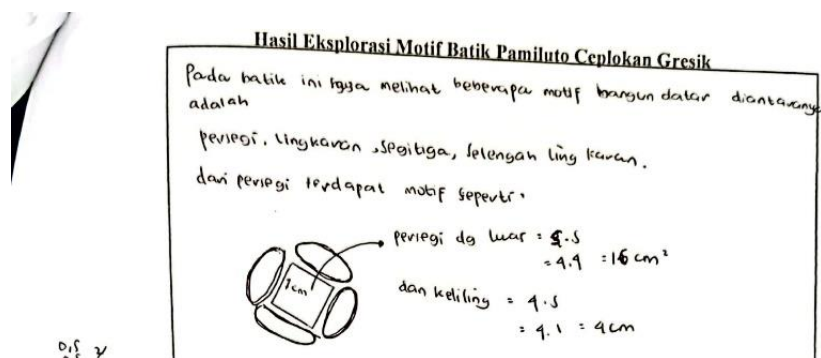 Hasil Eksplorasi Motif Batik Pamiluto Ceplokan Gresik
Pada batik ini saya melihat beberapa motif bangun datar diantaranya
adalah
persegi, lingkaran, segitiga, setengah lingkaran.
dari persegi terdapat motif seperti
persegi dg luas = s.s
= 4.4 = 16 cm²
1cm
dan keliling = 4.s
= 4.1 = 4cm
0,5